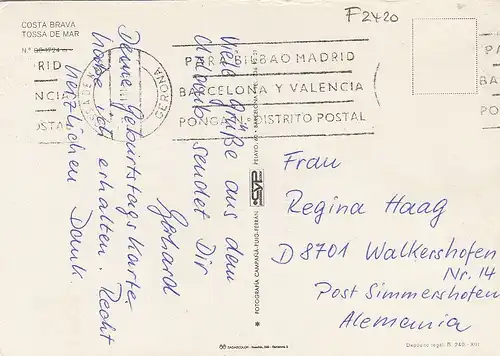 COSTA BRAVA
TOSSA DE MAR
F2420
RID
NCI
OSTA
GERONA
PARA BILBAO MADRID
BARCELONA Y VALENCIA
PONGA N.º DISTRITO POSTAL
Viele Grüße aus dem
Urlaub sendet Dir
Gerhard
Deine Geburtstagskarte
habe ich erhalten. Recht
herzlichen Dank.
FOTOGRAFIA CAMPAÑA PUIG-FERRAN
CYP
Frau
Regina Haag
D 8701 Walkershofen
Nr. 14
Post Simmershofen
Alemania
Depósito legal B. 240.-XIII